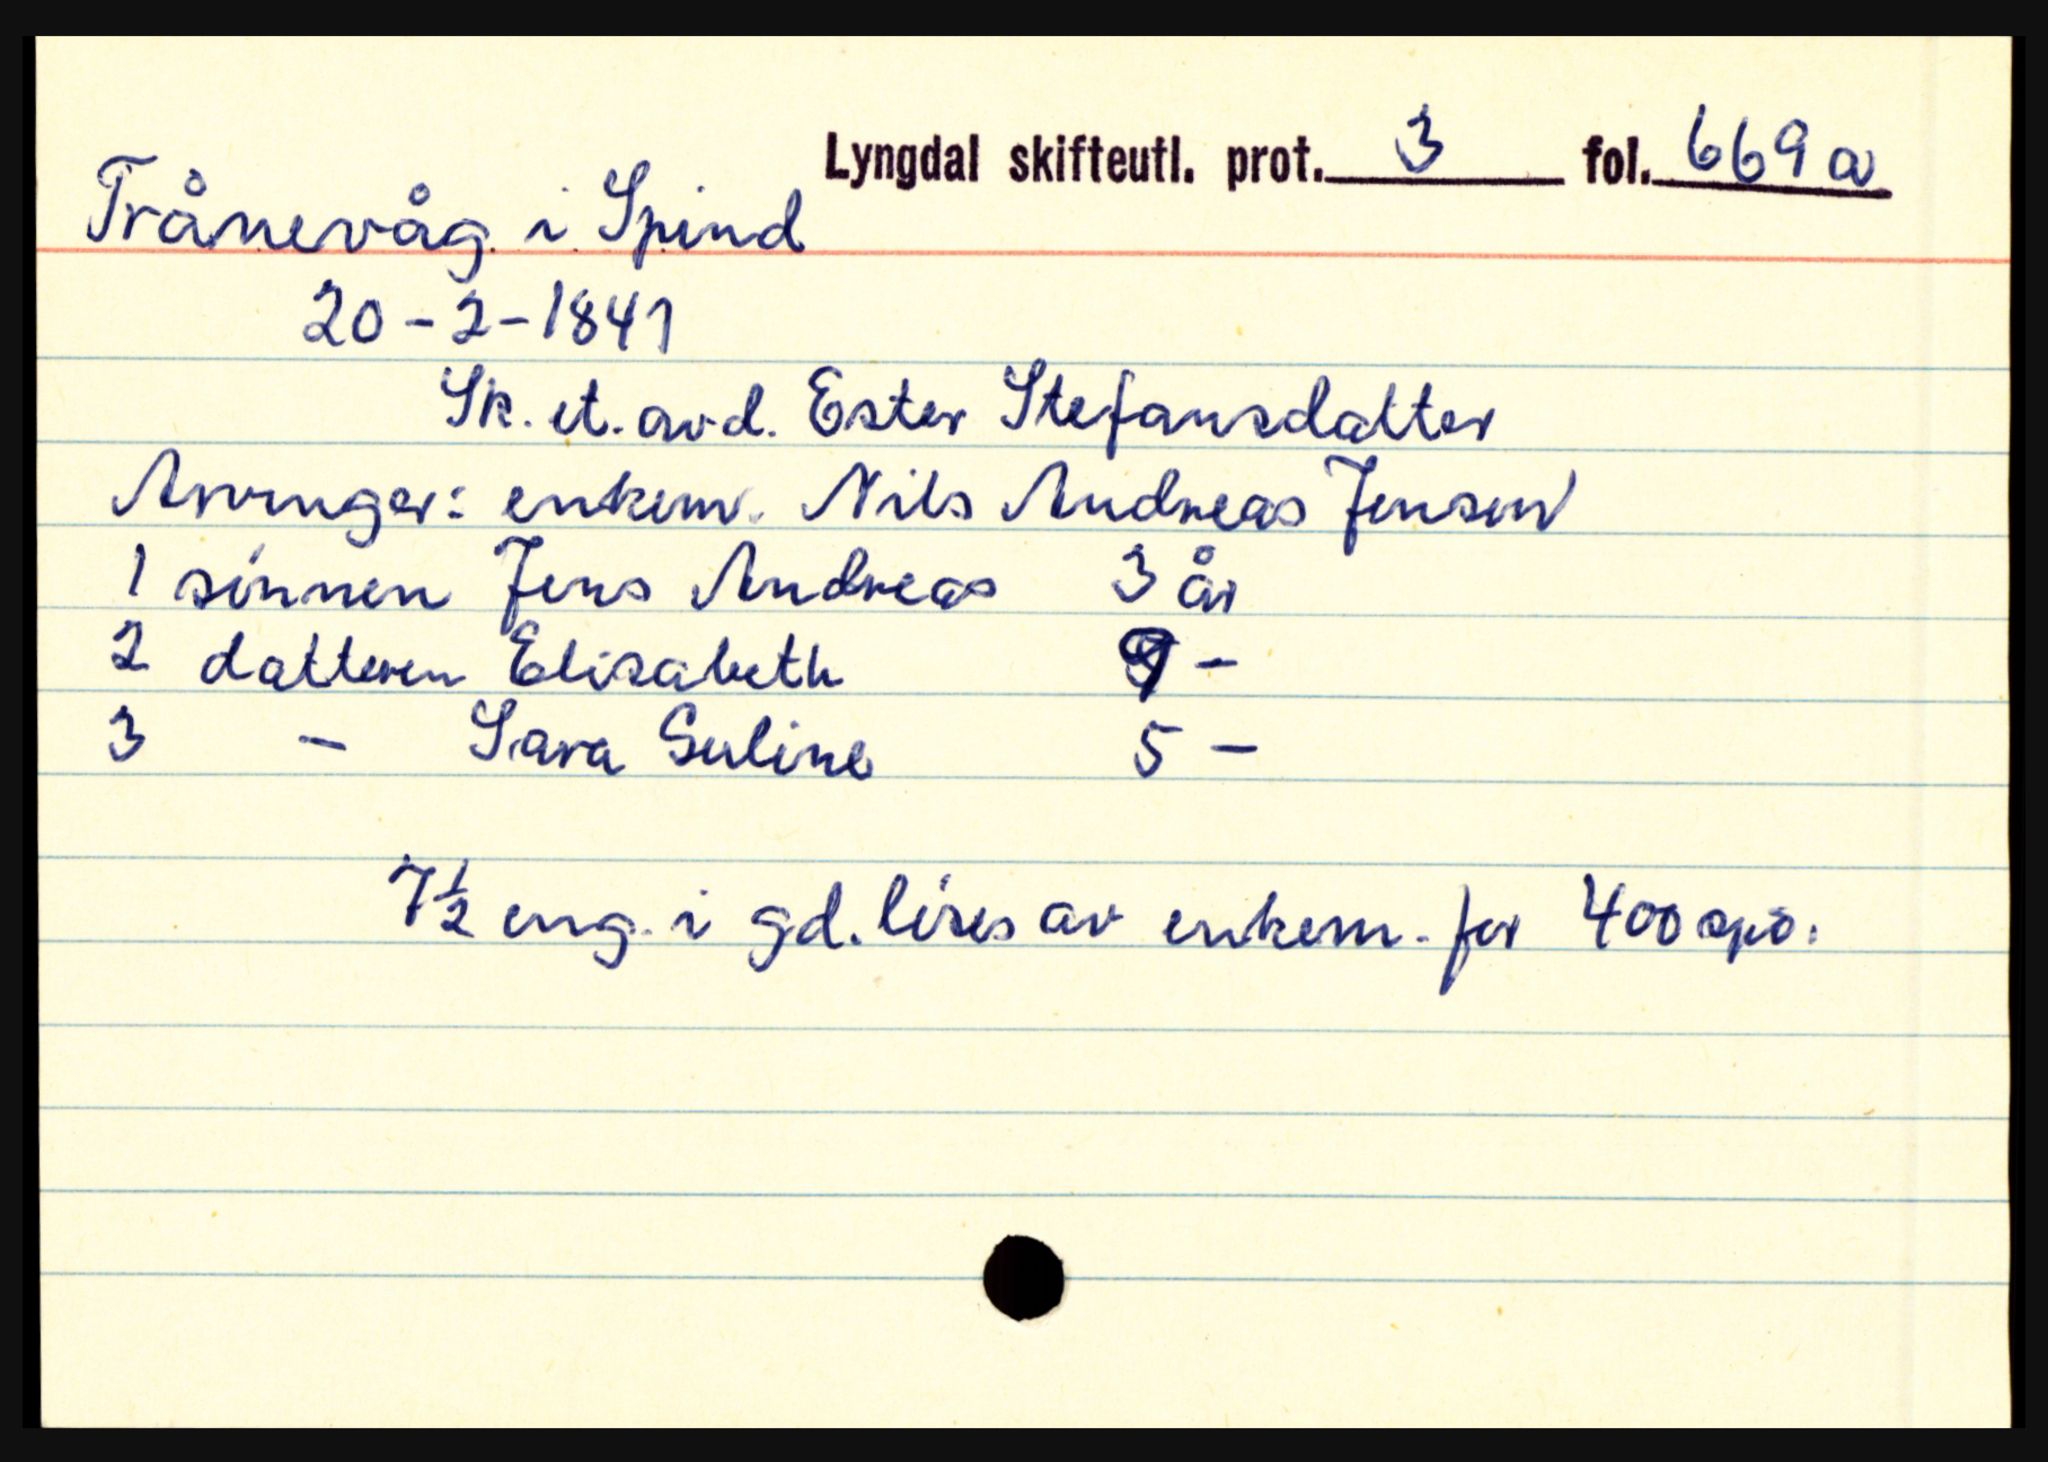 Lyngdal skifteutl. prot. 3 fol. 669a
Trånevåg i Spind
20-2-1841
Sk. et. avd. Ester Stefansdatter
Arvinger: enkem. Nils Andreas Jensen
1 sönnen Jens Andreas 3 år
2 datteren Elisabeth 9 -
3 - Sara Seline 5 -
7½ eng. i gd. löses av enkem. for 400 spd.